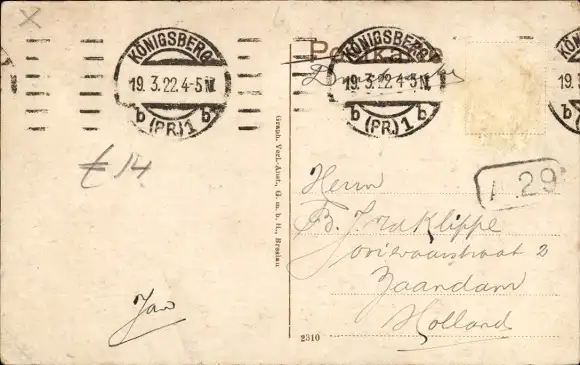 KÖNIGSBERG
19. 3. 22. 4-5 N.
b (PR.) 1 b
€ 14
Jan
Graph. Verl.-Anst., G. m. b. H., Breslau
Postkarte
KÖNIGSBERG
19. 3. 22. 4-5 N.
b (PR.) 1 b
19. 3.
b
29
Herrn
B. J.
Zaandam
Holland
2310